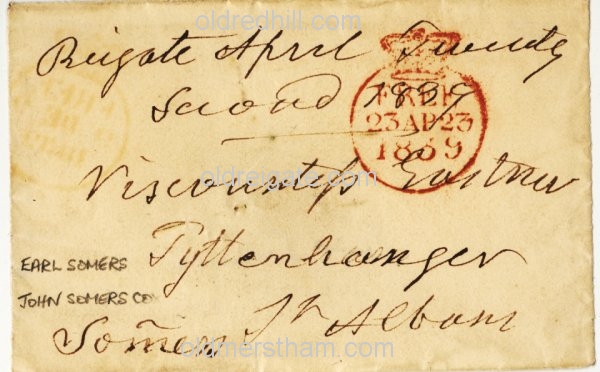 oldredhill.com
Reigate April Twenty
Second 1839
FREE
23 AP 23
1839
oldreigate.com
Viscountess Eastnor
Tyttenhanger
EARL SOMERS
JOHN SOMERS CO
St Albans
Somers
oldmerstham.com